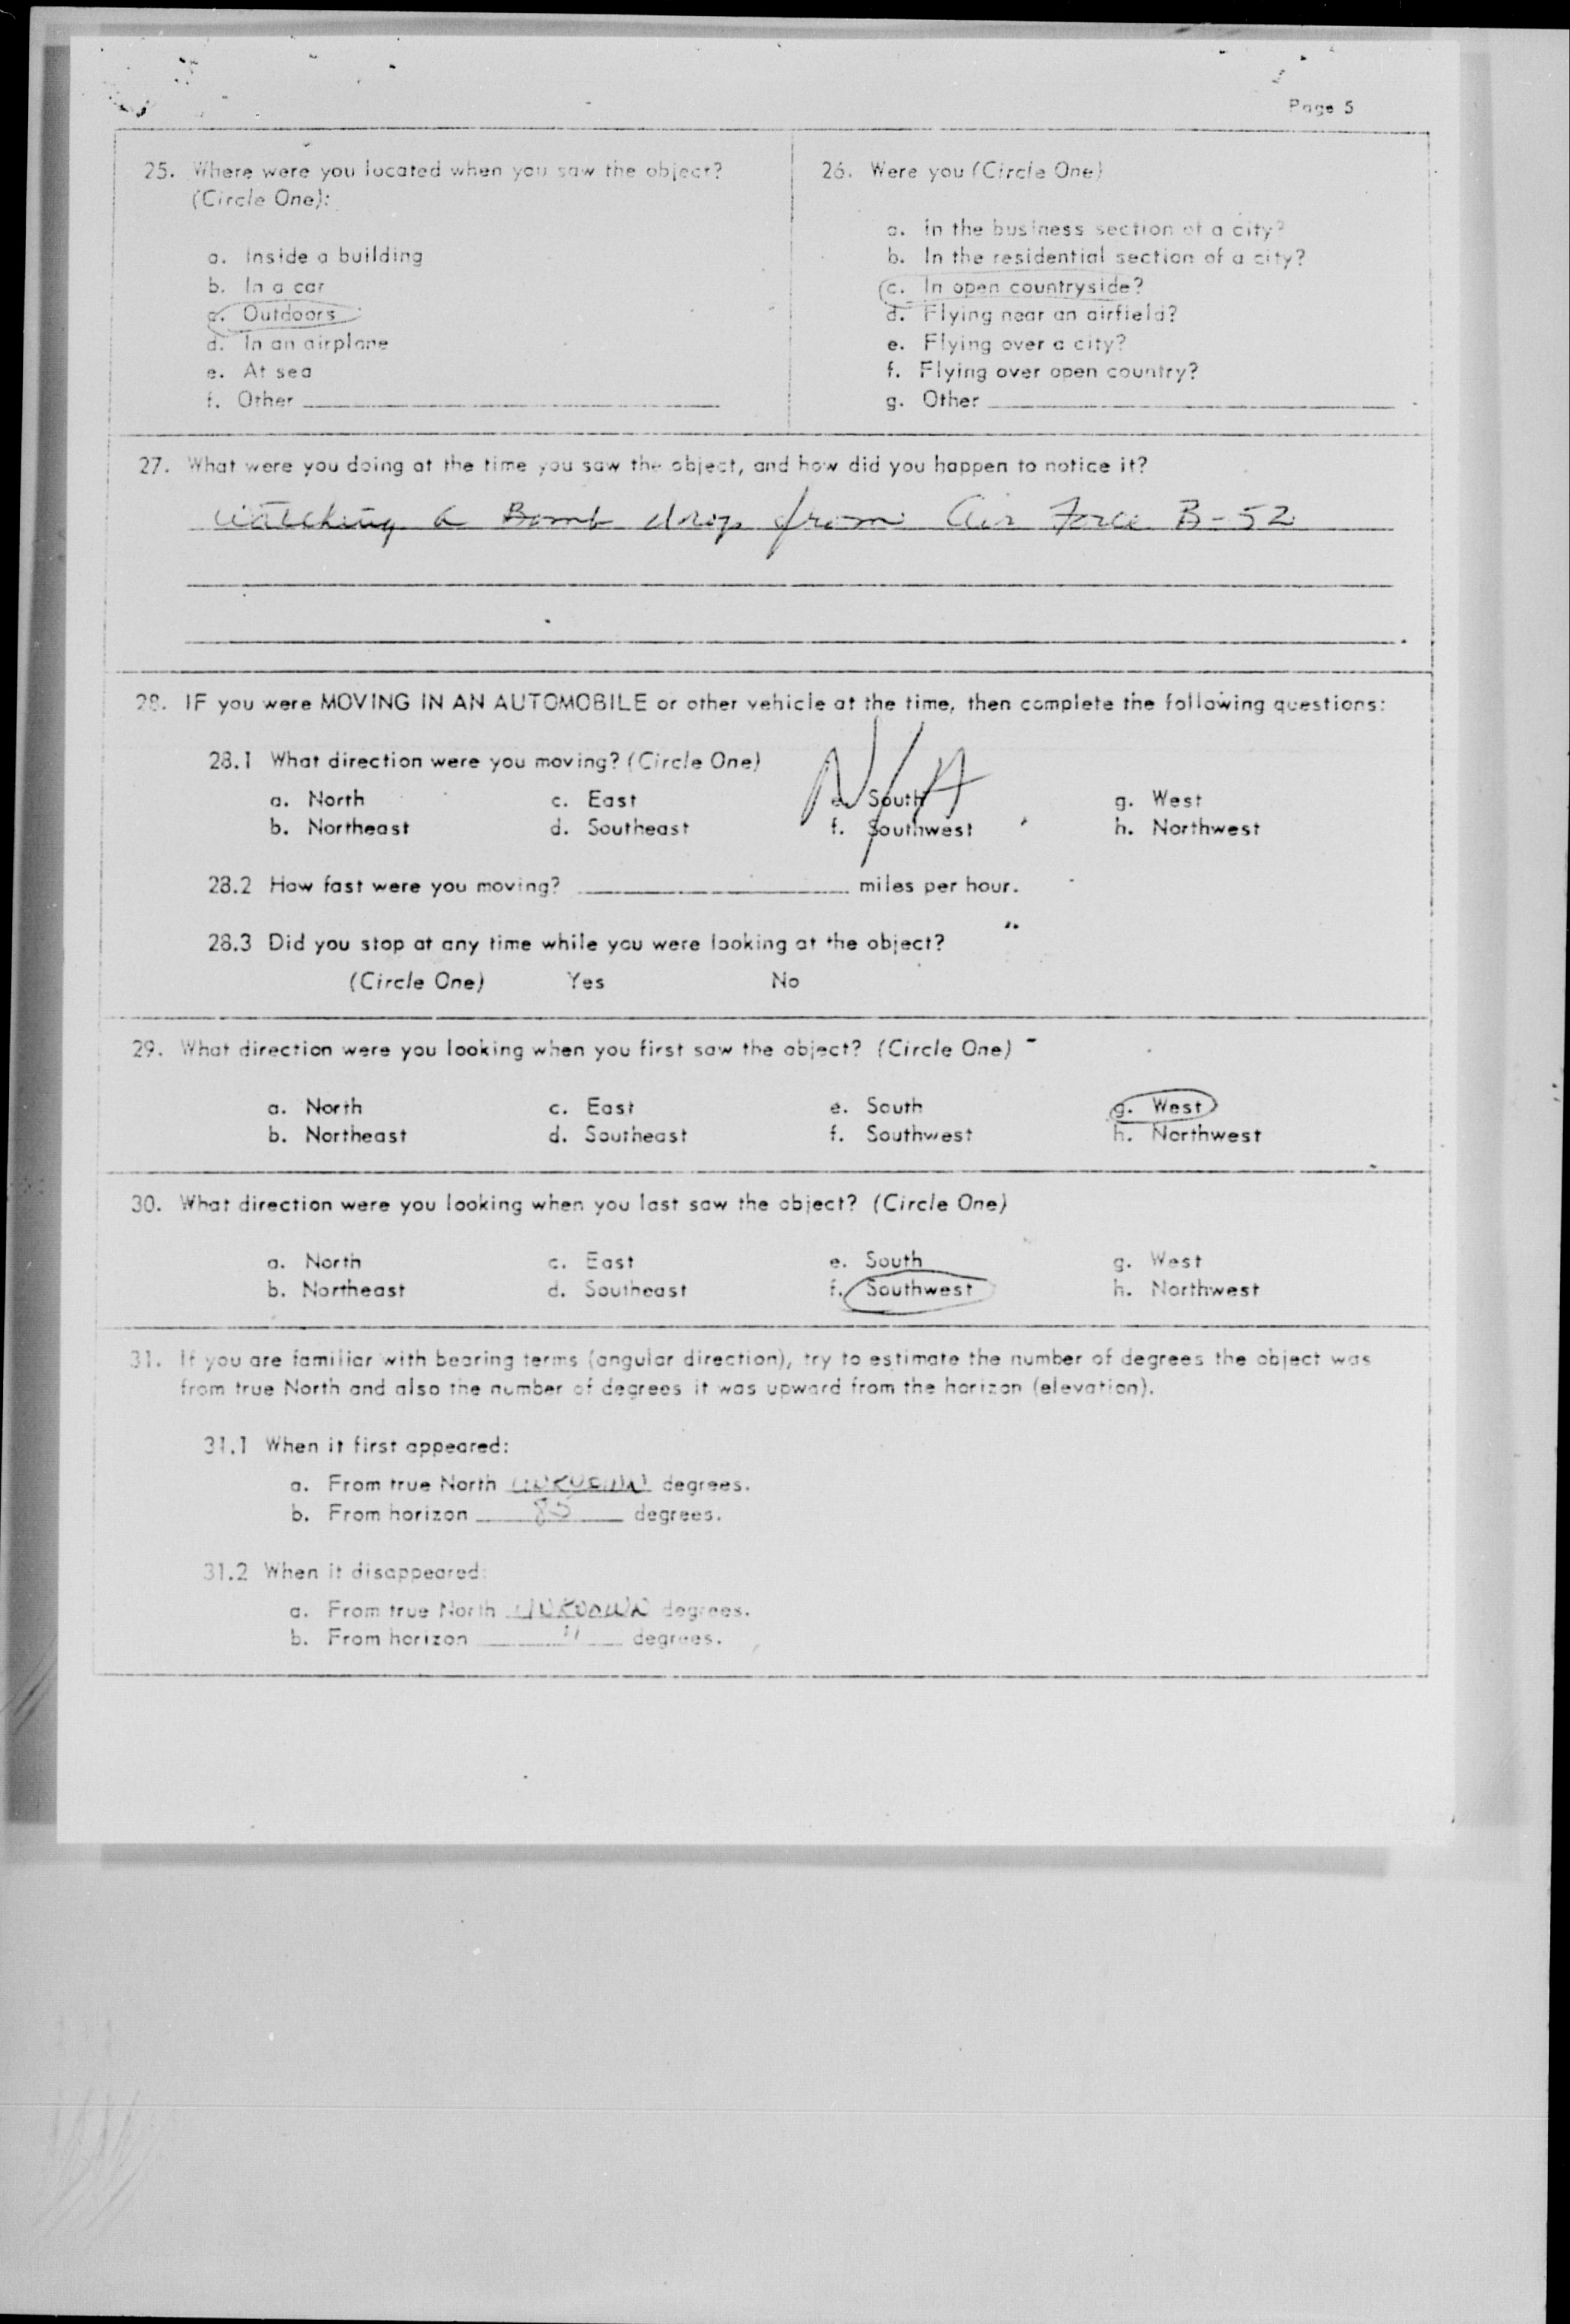 Page 5
25. Where were you located when you saw the object?
(Circle One):
a. Inside a building
b. In a car
c. Outdoors
d. In an airplane
e. At sea
f. Other
26. Were you (Circle One)
a. In the business section of a city?
b. In the residential section of a city?
c. In open countryside?
d. Flying near an airfield?
e. Flying over a city?
f. Flying over open country?
g. Other
27. What were you doing at the time you saw the object, and how did you happen to notice it?
watching a Bomb drop from Air Force B-52
28. IF you were MOVING IN AN AUTOMOBILE or other vehicle at the time, then complete the following questions:
28.1 What direction were you moving? (Circle One)
N/A
a. North c. East e. South g. West
b. Northeast d. Southeast f. Southwest h. Northwest
28.2 How fast were you moving? miles per hour.
28.3 Did you stop at any time while you were looking at the object?
(Circle One) Yes No
29. What direction were you looking when you first saw the object? (Circle One)
a. North c. East e. South g. West
b. Northeast d. Southeast f. Southwest h. Northwest
30. What direction were you looking when you last saw the object? (Circle One)
a. North c. East e. South g. West
b. Northeast d. Southeast f. Southwest h. Northwest
31. If you are familiar with bearing terms (angular direction), try to estimate the number of degrees the object was
from true North and also the number of degrees it was upward from the horizon (elevation).
31.1 When it first appeared:
a. From true North unknown degrees.
b. From horizon 85 degrees.
31.2 When it disappeared:
a. From true North unknown degrees.
b. From horizon " degrees.